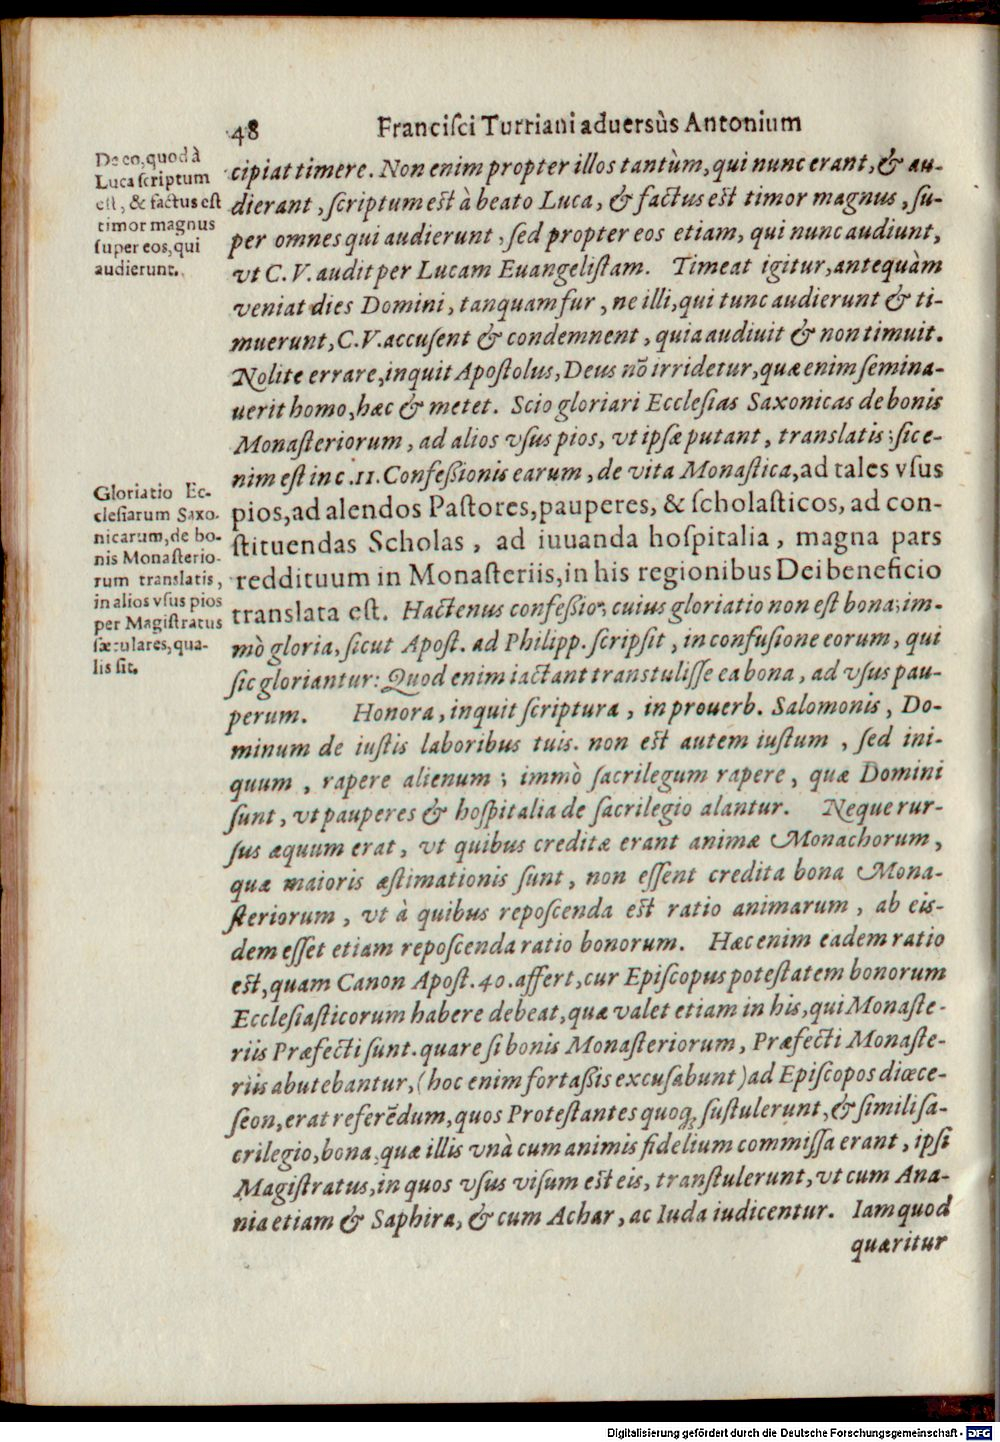 48 Franciſci Turriani aduersùs Antonium
De eo, quod à
Luca ſcriptum
eſt, & factus eſt
timor magnus
ſuper eos, qui
audierunt.
cipiat timere. Non enim propter illos tantùm, qui nunc erant, & au-
dierant, ſcriptum eſt à beato Luca, & factus eſt timor magnus, ſu-
per omnes qui audierunt, ſed propter eos etiam, qui nunc audiunt,
vt C. V. audit per Lucam Euangeliſtam. Timeat igitur, antequàm
veniat dies Domini, tanquam fur, ne illi, qui tunc audierunt & ti-
muerunt, C.V. accuſent & condemnent, quia audiuit & non timuit.
Nolite errare, inquit Apoſtolus, Deus nō irridetur, quæ enim ſemina-
uerit homo, hæc & metet. Scio gloriari Eccleſias Saxonicas de bonis
Monaſteriorum, ad alios vſus pios, vt ipſæ putant, translatis; ſic e-
nim eſt in c. 11. Confeßionis earum, de vita Monaſtica, ad tales vſus
pios, ad alendos Paſtores, pauperes, & ſcholaſticos, ad con-
ſtituendas Scholas, ad iuuanda hoſpitalia, magna pars
reddituum in Monaſteriis, in his regionibus Dei beneficio
translata eſt. Hactenus confeßio; cuius gloriatio non eſt bona; im-
mò gloria, ſicut Apoſt. ad Philipp. ſcripſit, in confuſione eorum, qui
ſic gloriantur: Quod enim iactant transtuliſſe ea bona, ad vſus pau-
perum. Honora, inquit ſcriptura, in prouerb. Salomonis, Do-
minum de iuſtis laboribus tuis. non eſt autem iuſtum, ſed ini-
quum, rapere alienum; immò ſacrilegum rapere, quæ Domini
ſunt, vt pauperes & hoſpitalia de ſacrilegio alantur. Neque rur-
ſus æquum erat, vt quibus creditæ erant animæ Monachorum,
quæ maioris æſtimationis ſunt, non eſſent credita bona Mona-
ſteriorum, vt à quibus repoſcenda eſt ratio animarum, ab eis-
dem eſſet etiam repoſcenda ratio bonorum. Hæc enim eadem ratio
eſt, quam Canon Apoſt. 40. affert, cur Epiſcopus poteſtatem bonorum
Eccleſiaſticorum habere debeat, quæ valet etiam in his, qui Monaſte-
riis Præfecti ſunt. quare ſi bonis Monaſteriorum, Præfecti Monaſte-
riis abutebantur, (hoc enim fortaßis excuſabunt) ad Epiſcopos diœce-
ſeon, erat referēdum, quos Proteſtantes quoq; ſuſtulerunt, & ſimili ſa-
crilegio, bona, quæ illis vnà cum animis fidelium commiſſa erant, ipſi
Magiſtratus, in quos vſus viſum eſt eis, tranſtulerunt, vt cum Ana-
nia etiam & Saphira, & cum Achar, ac Iuda iudicentur. Iam quod
quæritur
Gloriatio Ec-
cleſiarum Saxo-
nicarum, de bo-
nis Monaſterio-
rum translatis,
in alios vſus pios
per Magiſtratus
ſæculares, qua-
lis ſit.
Digitalisierung gefördert durch die Deutsche Forschungsgemeinschaft - DFG